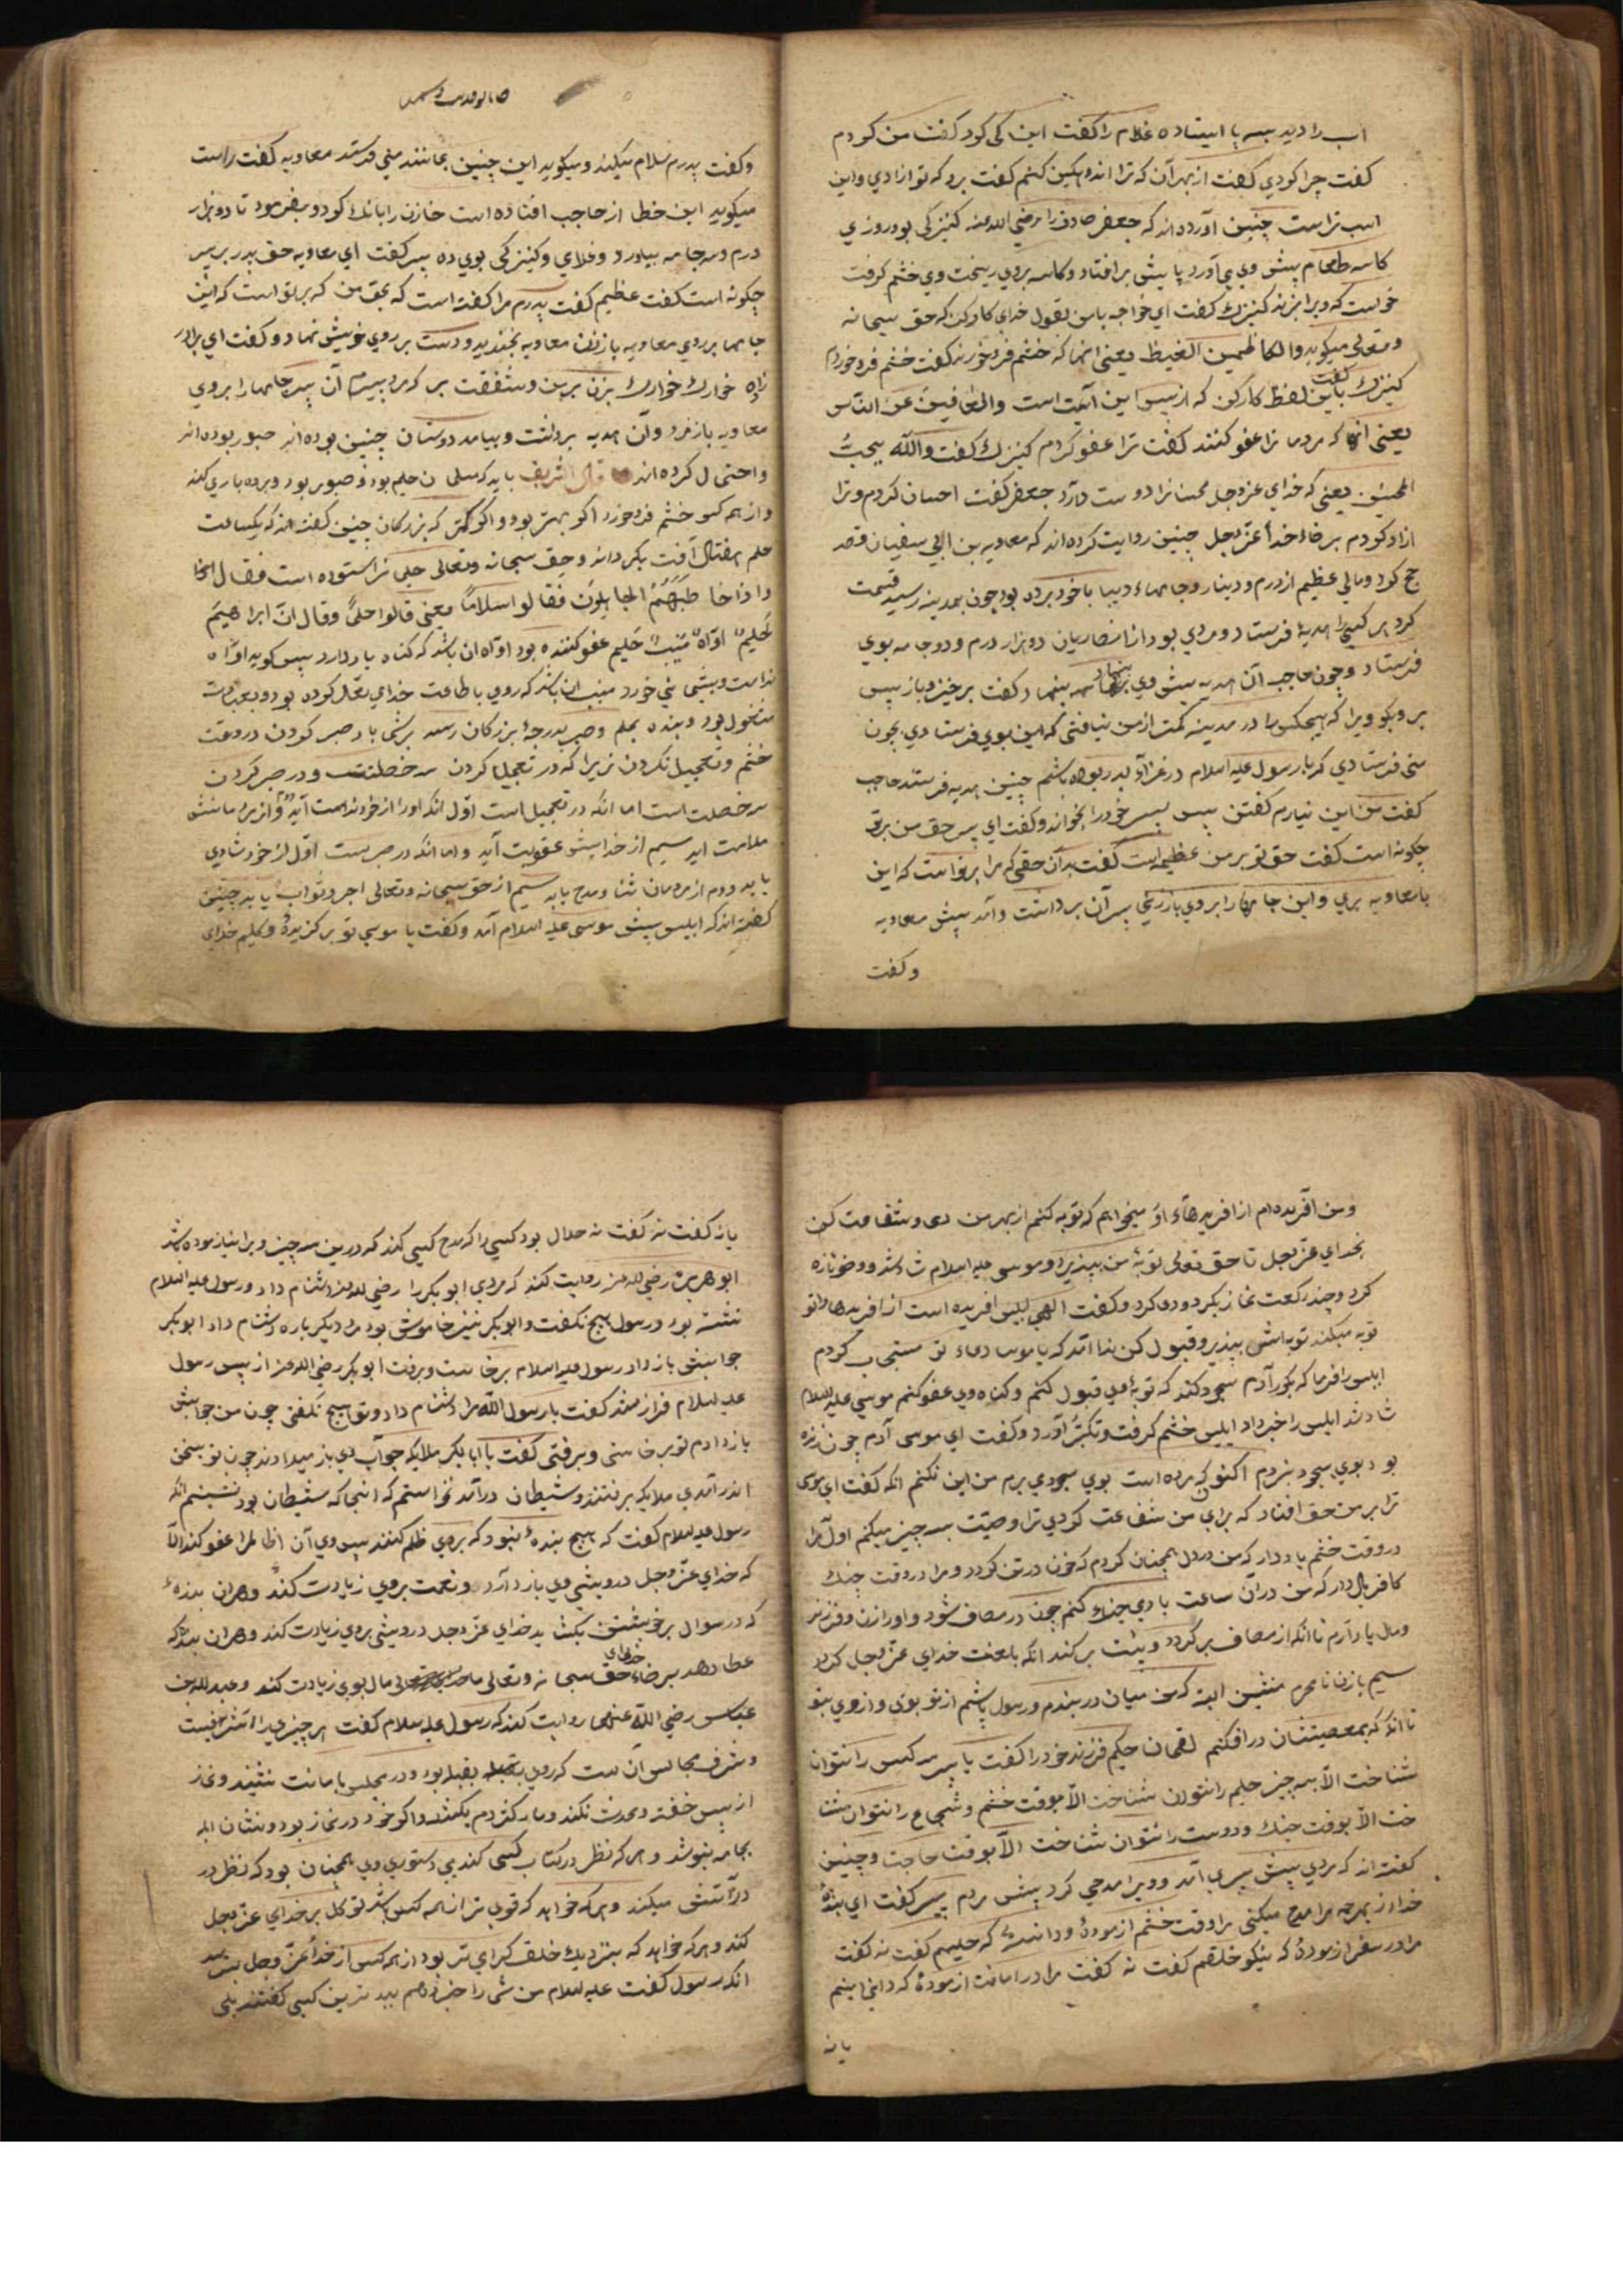 اسب را دید بسه پا ایستاده غلام را کفت این کی کرد کفت من کردم
کفت چرا کردي کفت از بهر آن که ترا اندوهکین کنم کفت برو که تو ازادي و این
اسب تراست چنین آورده اند که جعفر صادق را رضي الله عنه کنیزکي بود روزي
کاسه طعام پیش وي مي آورد پایش بر افتاد و کاسه بر وي ریخت وي خشم کرفت
خواست که ویرا بزند کنیزك کفت اي خواجه با من بقول خداي کار کن که حق سبحانه
وتعالی میکوید والکاظمین الغیظ یعنی انها که خشم فرو خورند کفت خشم فرو خوردم
کنیزك کفت باین لفظ کار کن که از پس این آیت است والعافین عن الناس
یعنی انها که مردمانرا عفو کنند کفت ترا عفو کردم کنیزك کفت والله یحب
المحسنین یعنی که خداي عزوجل محسنانرا دوست دارد جعفر کفت احسان کردم و ترا
ازاد کردم بر رضاء خداء عز وجل چنین روایت کرده اند که معاویه بن ابي سفیان قصد
حج کرد و مالي عظیم از درم و دینار و جامهاء دیبا با خود برده بود چون بمدینه رسید قسمت
کرد هر کسي را هدیهٔ فرستاد و مردي بود از انصاریان دو هزار درم و دو جامه بوي
فرستاد و چون حاجب آن هدیه پیش وي بنهاد کفت برخیز و باز پس
بر و بکو ویرا که هیچکس را در مدینه کمتر از من نیافتی که این بوي فرستادي بچون
منی فرستادي که با رسول علیه السلام در غزاء بدر بوده باشم چنین هدیه فرستند حاجب
کفت من این نیارم کفتن پس پسر خود را بخواند و کفت اي پسر حق من بر تو
چکونه است کفت حق تو بر من عظیمست کفت بدان حقی که مرا بر تو است که این
بامعاویه بري و این جامها را بر وي باز زني پسر آن برداشت و آمد پیش معاویه
و کفت
وکفت پدرم سلام میکند و میکوید این چنین بمانند منی فرستند معاویه کفت راست
میکوید این خطا از حاجب افتاده است خازن را بانك کرد و بفرمود تا دو هزار
درم و سه جامه بیاورد و غلامي و کنیزکی بوي ده پسر کفت اي معاویه حق پدر بر پسر
چکونه است کفت عظیم کفت پدرم مرا کفته است که بحق من که بر تو است که این
جامها بر روي معاویه باز زن معاویه بخندید و دست بر روي خویش نهاد و کفت اي برادر
زاده خوارك خوارك بزن بر من و شفقت بر که مرد پیرم آن پسر جامها را بروي
معاویه باز زد و آن هدیه برداشت و بیامد دوستان چنین بوده اند صبور بوده اند
و احتمال کرده اند قال الشریف باید که مسلمان حلیم بود و صبور بود و بردباري کند
و از همه کس خشم فرو خورد اکر بهتر بود و اکر کمتر که بزرکان چنین کفته اند که یکساعت
حلم هفتاد آفت بکرداند و حق سبحانه وتعالی حلیمانرا ستوده است فقال
واذا خاطبهم الجاهلون قالوا سلاما یعنی قالوا حلما وقال ان ابراهیم
لحلیم اواه منیب حلیم عفو کننده بود اواه ان باشد که کناه یاد دارد پس کوید اواه
ندامت و پشیمانی خورد منیب ان باشد که روي باطاعت خداي تعالی کرده بود و بعبادت
مشغول بود و بنده بحلم و صبر بدرجهٔ بزرکان رسد بر شما باد صبر کردن در وقت
خشم و تعجیل نکردن زیرا که در تعجیل کردن سه خصلتست و در صبر کردن
سه خصلت است اما انکه در تعجیل است اول انکه اورا از خود ندامت آید و از مردمانش
ملامت اید سیم از خدایش عقوبت آید و اما انکه در صبر است اول از خود شادي
یابد دوم از مردمان ثنا و مدح یابد سیم از حق سبحانه وتعالی اجر و ثواب یابد چنین
کفته اند که ابلیس پیش موسی علیه السلام آمد و کفت یا موسي تو برکزیدهٔ و کلیم خداي
ومن آفریده ام از افریدهاء او میخواهم که توبه کنم از بهر من دعا و شفاعت کن
بخداي عز وجل تا حق تعالی توبهٔ من بپذیرد و موسي علیه السلام شاد شد و وضو تازه
کرد و چند رکعت نماز بکرد و دعا کرد و کفت الهی ابلیس افریده است از افریدهاء تو
توبه میکند توبه اش بپذیر و قبول کن ندا امد که یا موسا دعاء تو مستجاب کردم
ابلیس را فرما که بکور آدم سجود کند که توبهٔ وي قبول کنم و کناه وي عفو کنم موسي علیه السلام
شاد شد ابلیس را خبر داد ابلیس خشم کرفت و تکبر آورد و کفت اي موسی آدم چون زنده
بود بوي سجود نبردم اکنون که مرده است بوي سجودي برم من این نکنم انکه کفت اي موسي
ترا بر من حق افتاد که براي من شفاعت کردي ترا وصیت بسه چیز میکنم اول مرا
در وقت خشم یاد دار که من در دل همچنان کردم که خون در تن کردد و مرا در وقت جنك
کافر یاد دار که من در آن ساعت با دمي جنك کنم چون در مصاف شود و اورا زن و فرزند
ومال یاد آرم تا انکه از مصاف بر کردد و پشت بر کند انکه بلعنت خداي عز وجل کردد
سیم با زن نامحرم منشین البته که من میان در بندم و رسول باشم از تو بوي و از وي بتو
تا انکه که بمعصیتتان در افکنم لقمان حکیم فرزند خود را کفت یا پسر سه کس را نتوان
شناخت الا بسه چیز حلیم را نتوان شناخت الا بوقت خشم و شجاع را نتوان شنا
خت الا بوقت جنك و دوست را نتوان شناخت الا بوقت حاجت و چنین
کفته اند که مردي پیش پسري آمد و ویرا مدحي کرد پیش مردم پیر کفت اي بندهٔ
خدا از بهر چه مرا مدح میکني مرا وقت خشم ازمودهٔ و دانستهٔ که حلیمم کفت نه کفت
مرا در سفر ازمودهٔ که نیکو خلقم کفت نه کفت مرا در امانت ازمودهٔ که داني امینم
یا نه
یا نه کفت نه کفت نه حلال بود کسي را که مدح کسي کند که درین سه چیز ویرا نیازموده باشد
ابو هریرة رضي الله عنه روایت کند که مردي ابو بکر را رضي الله عنه دشنام داد و رسول علیه السلام
نشسته بود و رسول هیچ نکفت و ابو بکر نیز خاموش بود مرد دیکر باره دشنام داد ابو بکر
جوابش باز داد رسول علیه السلام برخاست و برفت ابو بکر رضي الله عنه از پس رسول
علیه السلام فراز شد کفت یا رسول الله مرا دشنام داد و تو هیچ نکفتی چون من جوابش
باز دادم تو برخاستی و برفتی کفت یا ابابکر ملایکه جواب وي باز میدادند چون تو بسخن
اندر آمدي ملایکه برفتند و شیطان درآمد نخواستم که انجا که شیطان بود نشینم انکه
رسول علیه السلام کفت که هیچ بندهٔ نبود که بروي ظلم کنند پس وي آن ظالم را عفو کند الا
که خداي عز وجل درویشي وي باز دارد و نعمت بروي زیادت کند و هر آن بندهٔ
که در سوال بر خویشتن بکشاید خداي عز وجل درویشي بروي زیادت کند و هر آن بنده که
عطا دهد بر رضاء خداي حق سبحانه وتعالی مال بوي زیادت کند و عبد الله بن
عباس رضي الله عنهما روایت کند که رسول علیه السلام کفت هر چیزي را شرفیست
و شرف مجالس آن است که روي بقبله بود و در مجلس با مانت نشیند و نماز
از پس خفته و محدث نکند و مار کژدم بکشد و اکر خود در نماز بود و نشان
بجامه نپوشد و هر که نظر در کتاب کسی کند بي دستوري وي همچنان بود که نظر در
در آتش میکند و هر که خواهد که قوي تر از همه کس باشد توکل بر خداي عز وجل
کند و هر که خواهد که بنزدیك خلق کرامي تر بود از همه کس از خداء عز وجل بترسد
انکه رسول کفت علیه السلام من شما را خبر دهم ببدترین کسی کفتند بلی